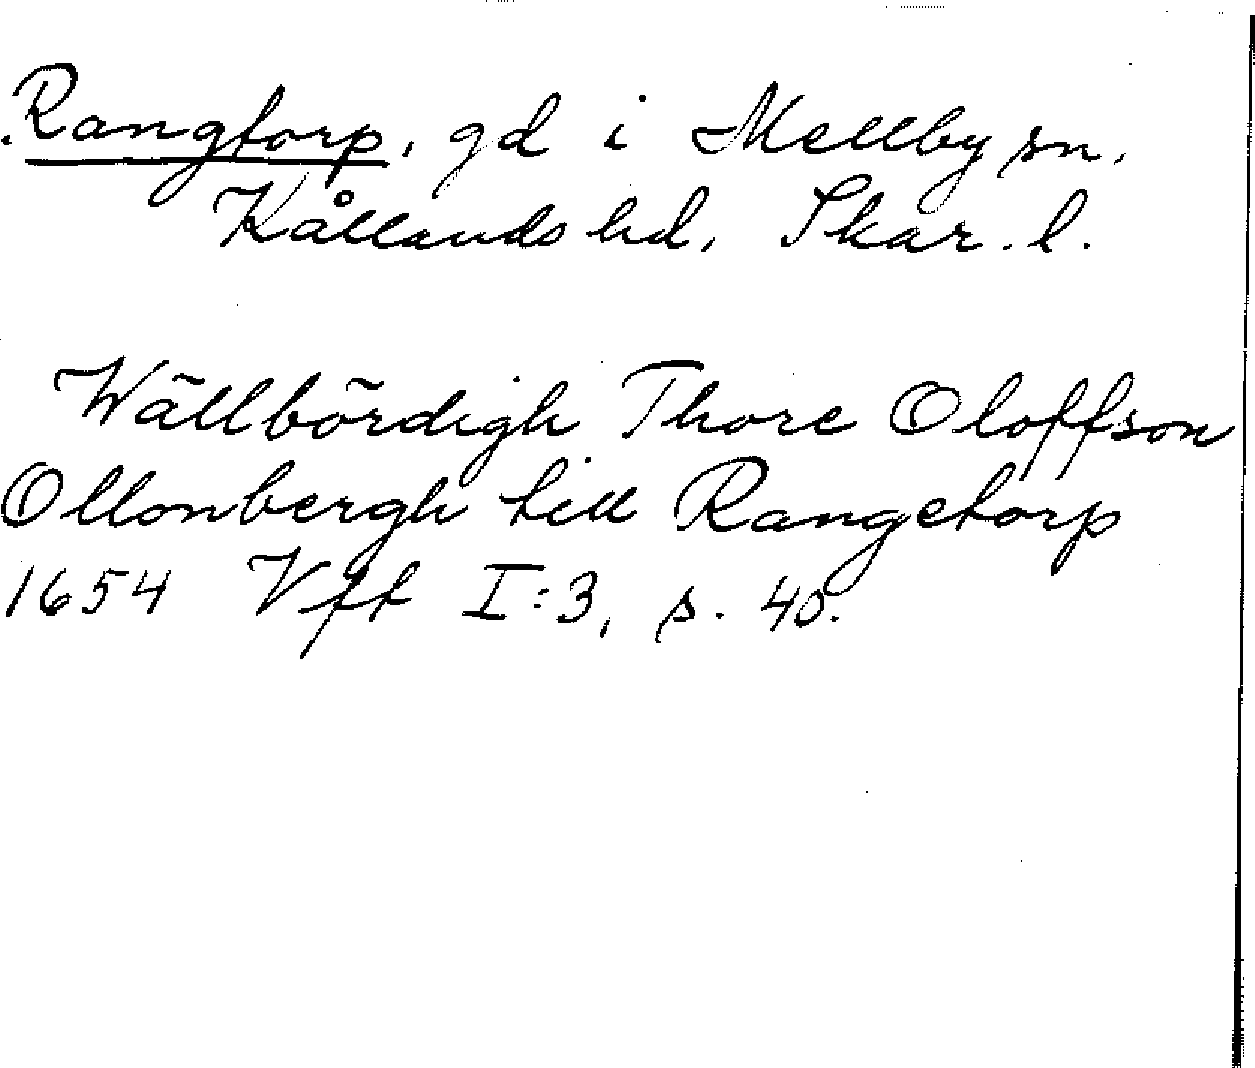 Rangtorp, gd i Mellby sn,
Kållands hd, Skar. l.
Wällbördigh Thore Oloffson
Ollonbergh till Rangetorp
1654 Vft I:3, s. 40.